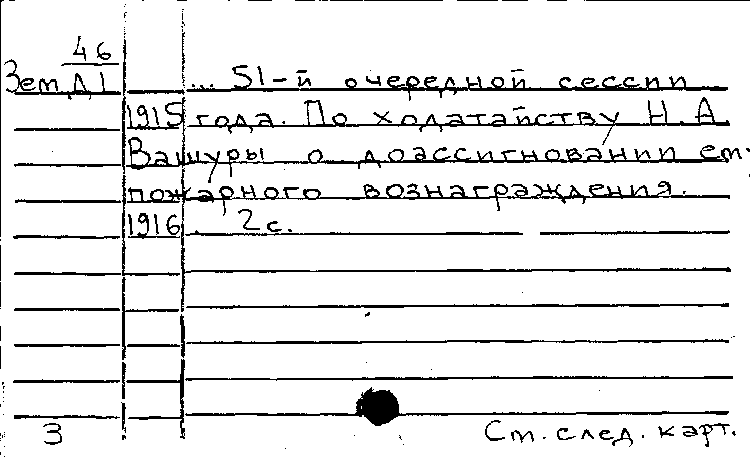 46
Зем Д1 ... 51-й очередной сессии
1915 года. По ходатайству Н.А.
Вашуры о доассигновании ему
пожарного вознаграждения.
1916. 2с.
3 См. след. карт.